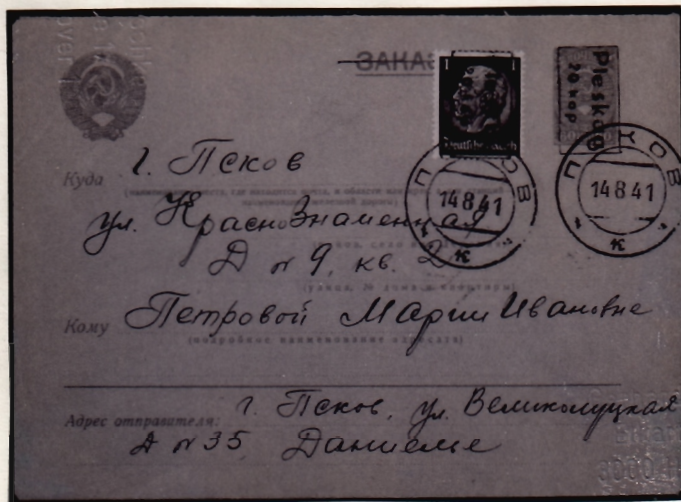 ЗАКАЗ
1
Deutsches Reich
Pleskau
20 коп
ПСКОВ
14 8 41
к
ПСКОВ
14 8 41
к
Куда г. Псков
ул. Краснознаменная
Д № 9, кв. 2
Кому Петровой Марии Ивановне
(подробное наименование адресата)
Адрес отправителя: г. Псков, ул. Великолуцкая
Д № 35 Даниелье